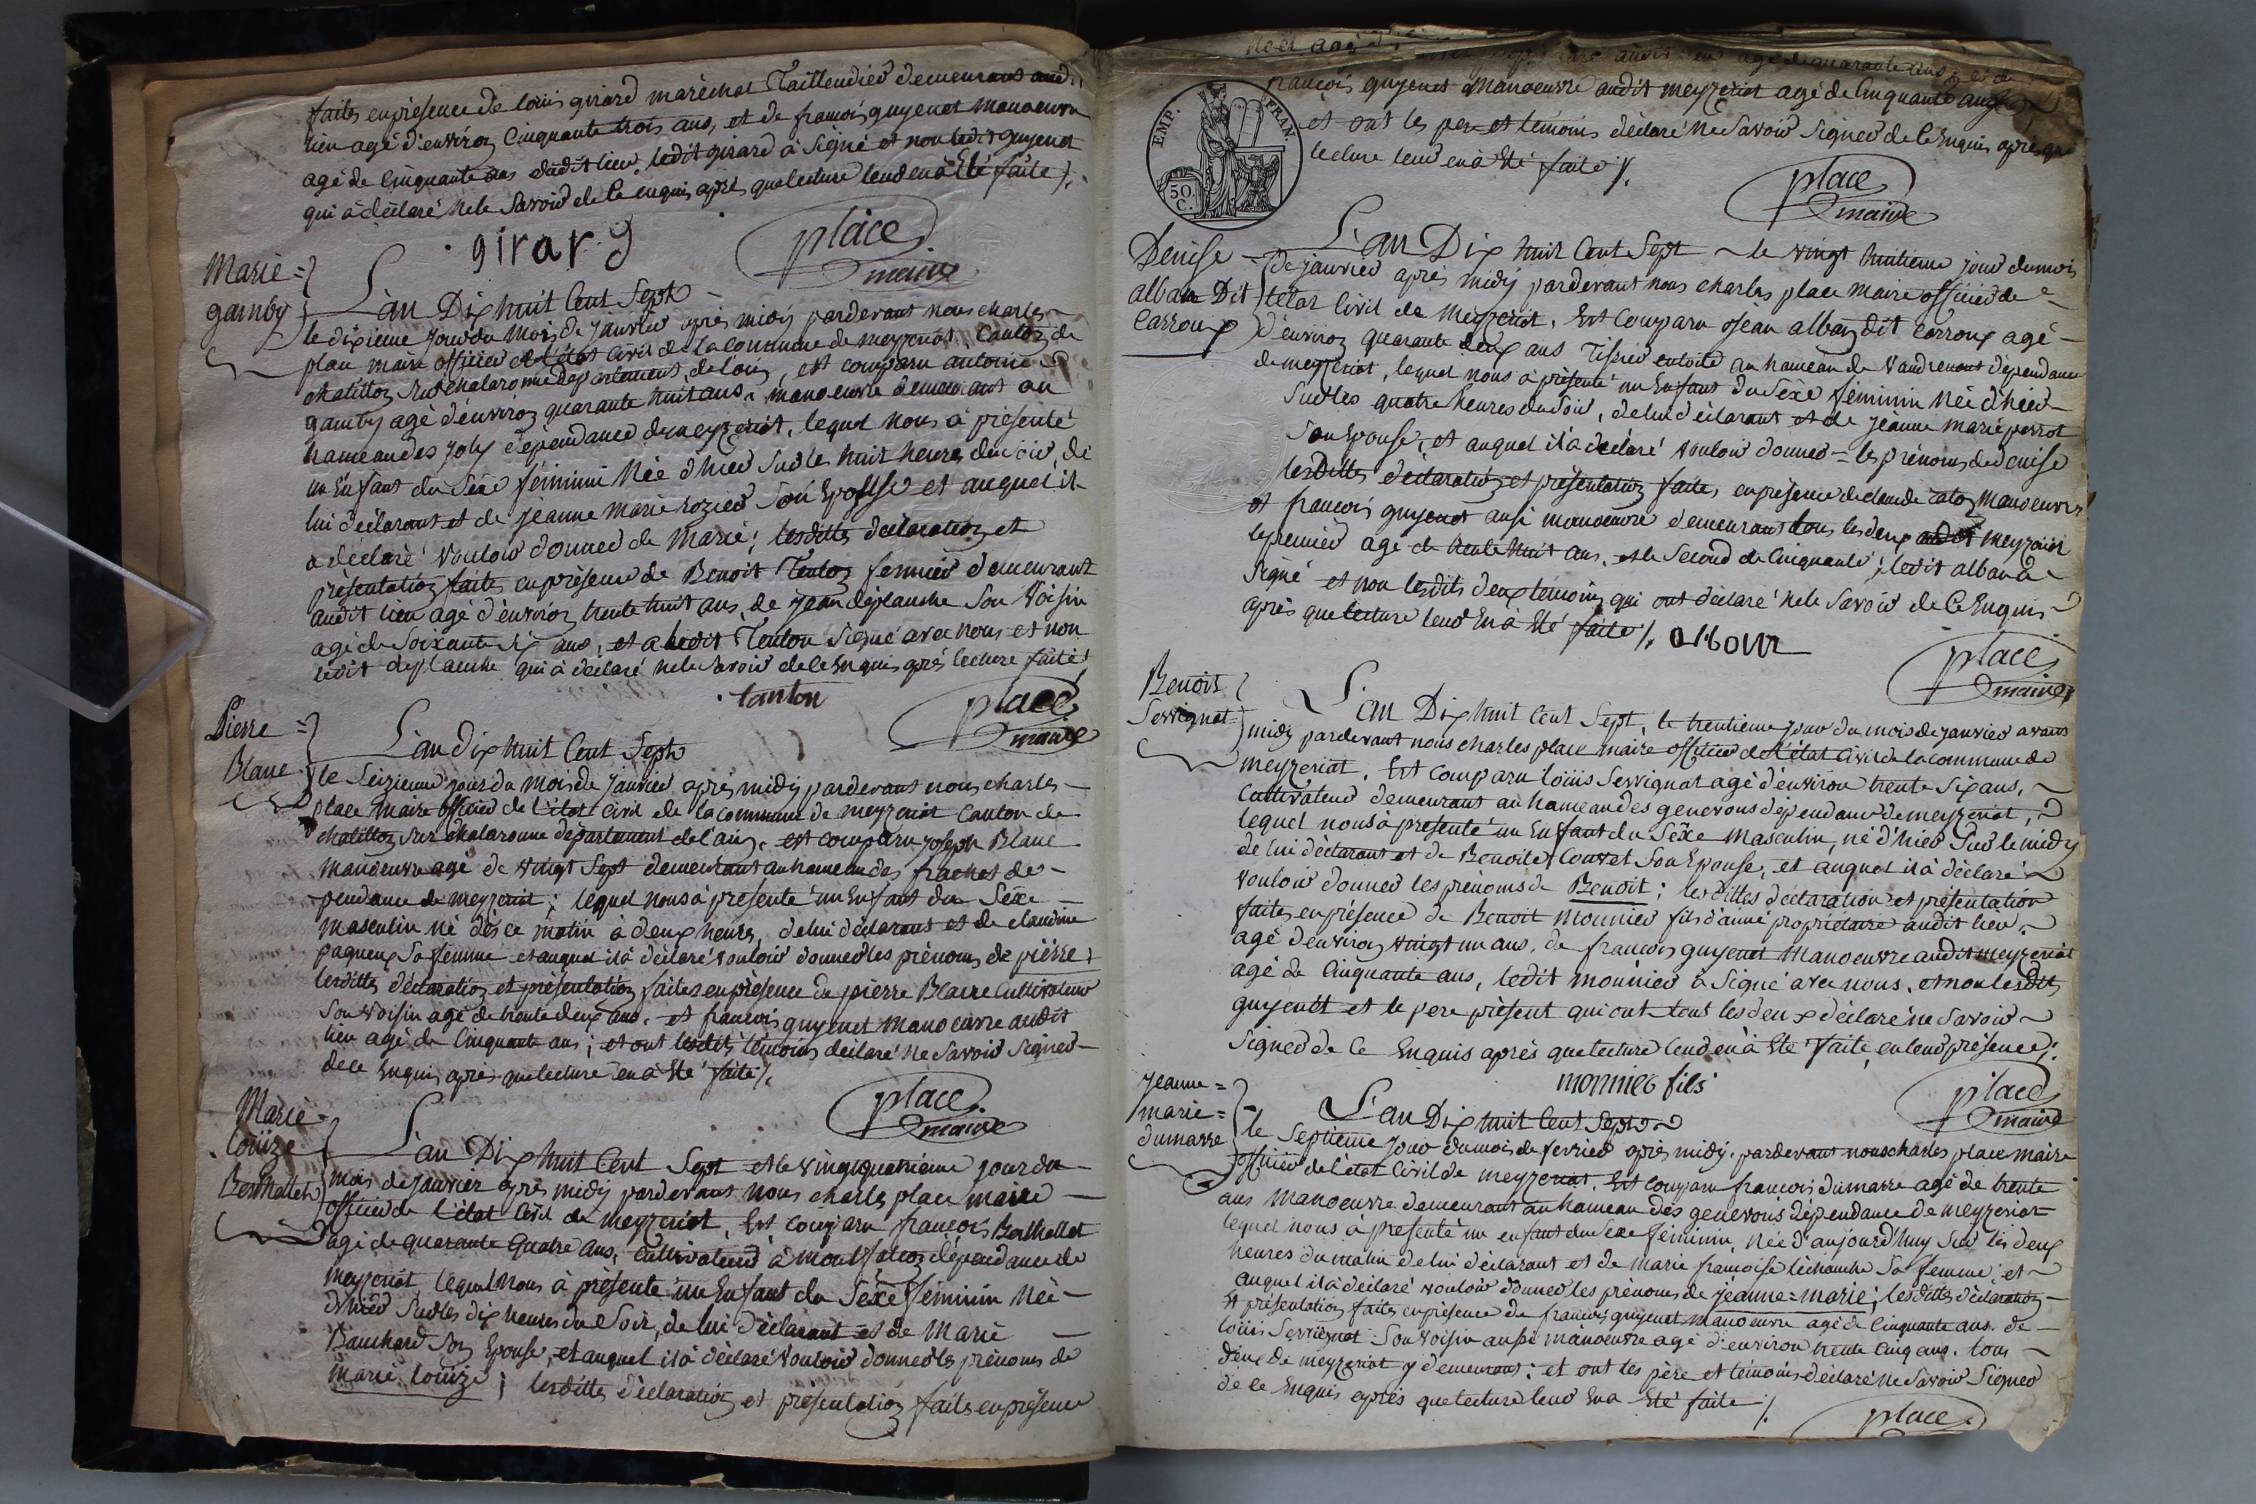 faites en présence de loüis girard maréchal Taillendier demeurant audit
lieu agé d'environ Cinquante trois ans, et de françois guyenet manoeuvre
agé de Cinquante ans dudit lieu. ledit girard à Signé et non ledit guyenet
qui à déclaré ne le Savoir de Ce enquis après que lecture leur en à Eté faite /.
girard
place
maire
Marie =
gamby
L'an Dix huit Cent Sept
le dixieme Jour du Mois de Janvier après midy pardevant nous charles
place maire officier de l'état Civil de la Commune de meyzeriat Canton de
chatillon sur chalaronne Département de l'ain, est comparu antoine
gamby agé d'environ quarante huit ans, manoeuvre demeurant au
hameau des Joly dépendance de meyzeriat, lequel nous à présenté
un Enfant du Séxe féminin Née d'hier Sur les huit heures du soir, de
lui déclarant et de jéanne marie rozier Son Epouse et auquel il
a déclaré vouloir donner de Marie; lesdittes déclaration et
présentation faites en présence de Benoit Tenton fermier demeurant
audit lieu agé d'environ trente huit ans, de jean déplanche Son Voisin
agé de Soixante Six ans, et a ledit Tenton Signé avec nous et non
ledit deplanche qui à déclaré ne le Savoir de Ce Enquis après lecture faite /
tanton
place
maire
Pierre =
Blanc
L'an dix huit Cent Sept
le Seizieme jour du mois de Janvier après midy pardevant nous charles
place Maire officier de l'état Civil de la Commune de meyzeriat Canton de
chatillon sur chalaronne département de l'ain, est comparu joseph Blanc
manoeuvre agé de vingt Sept demeurant au hameau des fraches dé-
pendance de meyzeriat; lequel nous à présenté un Enfant du Séxe
masculin né dès ce matin à deux heures, de lui déclarant et de claudine
pagneux Sa femme et auquel il à déclaré vouloir donner les prénoms de pièrre;
lesdittes déclaration et présentation faites en présence de pierre Blanc Cultivateur
Son Voisin agé de trente deux ans, et françois guyenet manoeuvre audit
lieu agé de Cinquante ans; et ont lesdits témoins déclaré ne Savoir Signer
de Ce Enquis après que lecture en à Eté faite /.
place
maire
Marie =
loüize
Berthallet
L'an Dix huit Cent Sept et le vingt quatrieme jour du
mois de janvier après midy pardevant nous charles place maire
officier de l'état Civil de meyzeriat, Est comparu françois Berthallet
agé de quarante quatre ans, Cultivateur à dépendance de
meyzeriat lequel nous à présenté un Enfant du Séxe féminin Née
d'hier Sur les dix heures du Soir, de lui déclarant et de Marie
Bauchard Son Epouse, et auquel il à déclaré vouloir donner les prénoms de
marie loüize; lesdittes déclaration et présentation faite en présence
EMP. FRAN.
50 C.
françois guyenet Manoeuvre audit meyzeriat agé de Cinquante ans
et ont les pere et temoins déclaré Ne Savoir Signer de Ce Enquis après que
lecture leur en à Eté faite /.
place
maire
Denise =
alban Dit
Carroux
L'an Dix huit Cent Sept le vingt huitieme jour du mois
de janvier après midy pardevant nous charles place Maire officier de
l'état Civil de Meyzeriat. Est comparu Jean alban dit Carroux agé
d'environ quarante deux ans Tissier en toile au hameau de Vaudrenant dépendance
de meyzeriat, lequel nous à présenté un Enfant du Séxe féminin Née d'hier
Sur les quatre heures du Soir, de lui déclarant et de jéanne marie perrot
Son Epouse, et auquel il à déclaré vouloir donner = les prénoms de denise
lesDittes déclaration et présentation faites en présence de claude manoeuvre
et françois guyenet aussi manoeuvre demeurant tous les deux audit meyzeriat
le premier agé de trente huit ans, et le Second de Cinquante; ledit alban à
Signé et non lesdits deux témoins qui ont déclaré ne le Savoir de Ce Enquis
après que lecture leur En à Eté faite /. alban
place
maire
Benoit
Servignat =
L'an Dix huit Cent Sept, le trentieme jour du mois de janvier avant
midy pardevant nous charles place maire officier de l'état Civil de la commune de
meyzeriat. Est comparu loüis Servignat agé d'environ trente Six ans,
Cultivateur demeurant au hameau des genevous dépendance de meyzeriat,
lequel nous à présenté un Enfant du Séxe Masculin, né d'hier Sur le midy
de lui déclarant et de Benoite Couvet Son Epouse, et auquel il à déclaré
vouloir donner les prénoms de Benoit; lesdittes déclaration et présentation
faites en présence de Benoit Monnier fils d'aimé propriétaire audit lieu,
agé d'environ vingt un ans, de françois guyenet Manoeuvre audit meyzeriat
agé de Cinquante ans, ledit mounier à Signé avec nous, et non lesdits
guyenett et le pere présent qui ont tous les deux déclaré ne Savoir
Signer de Ce Enquis après que lecture leur en à Eté faite, en leur présence /.
monnier fils
place
maire
Jeanne =
marie =
dumarre
L'an Dix huit Cent Sept
le Septieme Jour du mois de fevrier après midy, pardevant nous charles place maire
officier de l'état Civil de meyzeriat, Est comparu françois dumarre agé de trente
ans manoeuvre demeurant au hameau des genevous dépendance de meyzeriat
lequel nous à présenté un enfant du Sexe féminin, née d'aujourd'huy Sur les deux
heures du matin de lui déclarant et de marie françoise léchanche Sa femme, et
auquel il à déclaré vouloir donner les prénoms de jéanne = marie; lesdittes déclaration
et présentation faites en présence de françois guyenet manoeuvre agé de Cinquante ans de
loüis Servignat Son Voisin aussi manoeuvre agé d'environ trente Cinq ans, tous
deux de meyzeriat y demeurant; et ont les père et témoins déclaré Ne Savoir Signer
de Ce Enquis après que lecture leur En a Eté faite /.
place